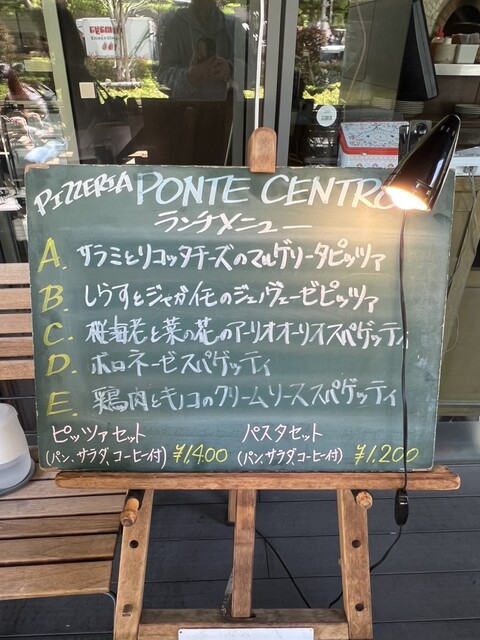 PIZZERIA PONTE CENTRO
ランチメニュー
A. サラミとリコッタチーズのマルゲリータピッツァ
B. しらすとジャガイモのジェノヴェーゼピッツァ
C. 桜海老と菜の花のアーリオオーリオスパゲッティ
D. ボロネーゼスパゲッティ
E. 鶏肉とキノコのクリームソーススパゲッティ
ピッツァセット パスタセット
(パン、サラダ、コーヒー付) ¥1,400 (パン、サラダ、コーヒー付) ¥1,200